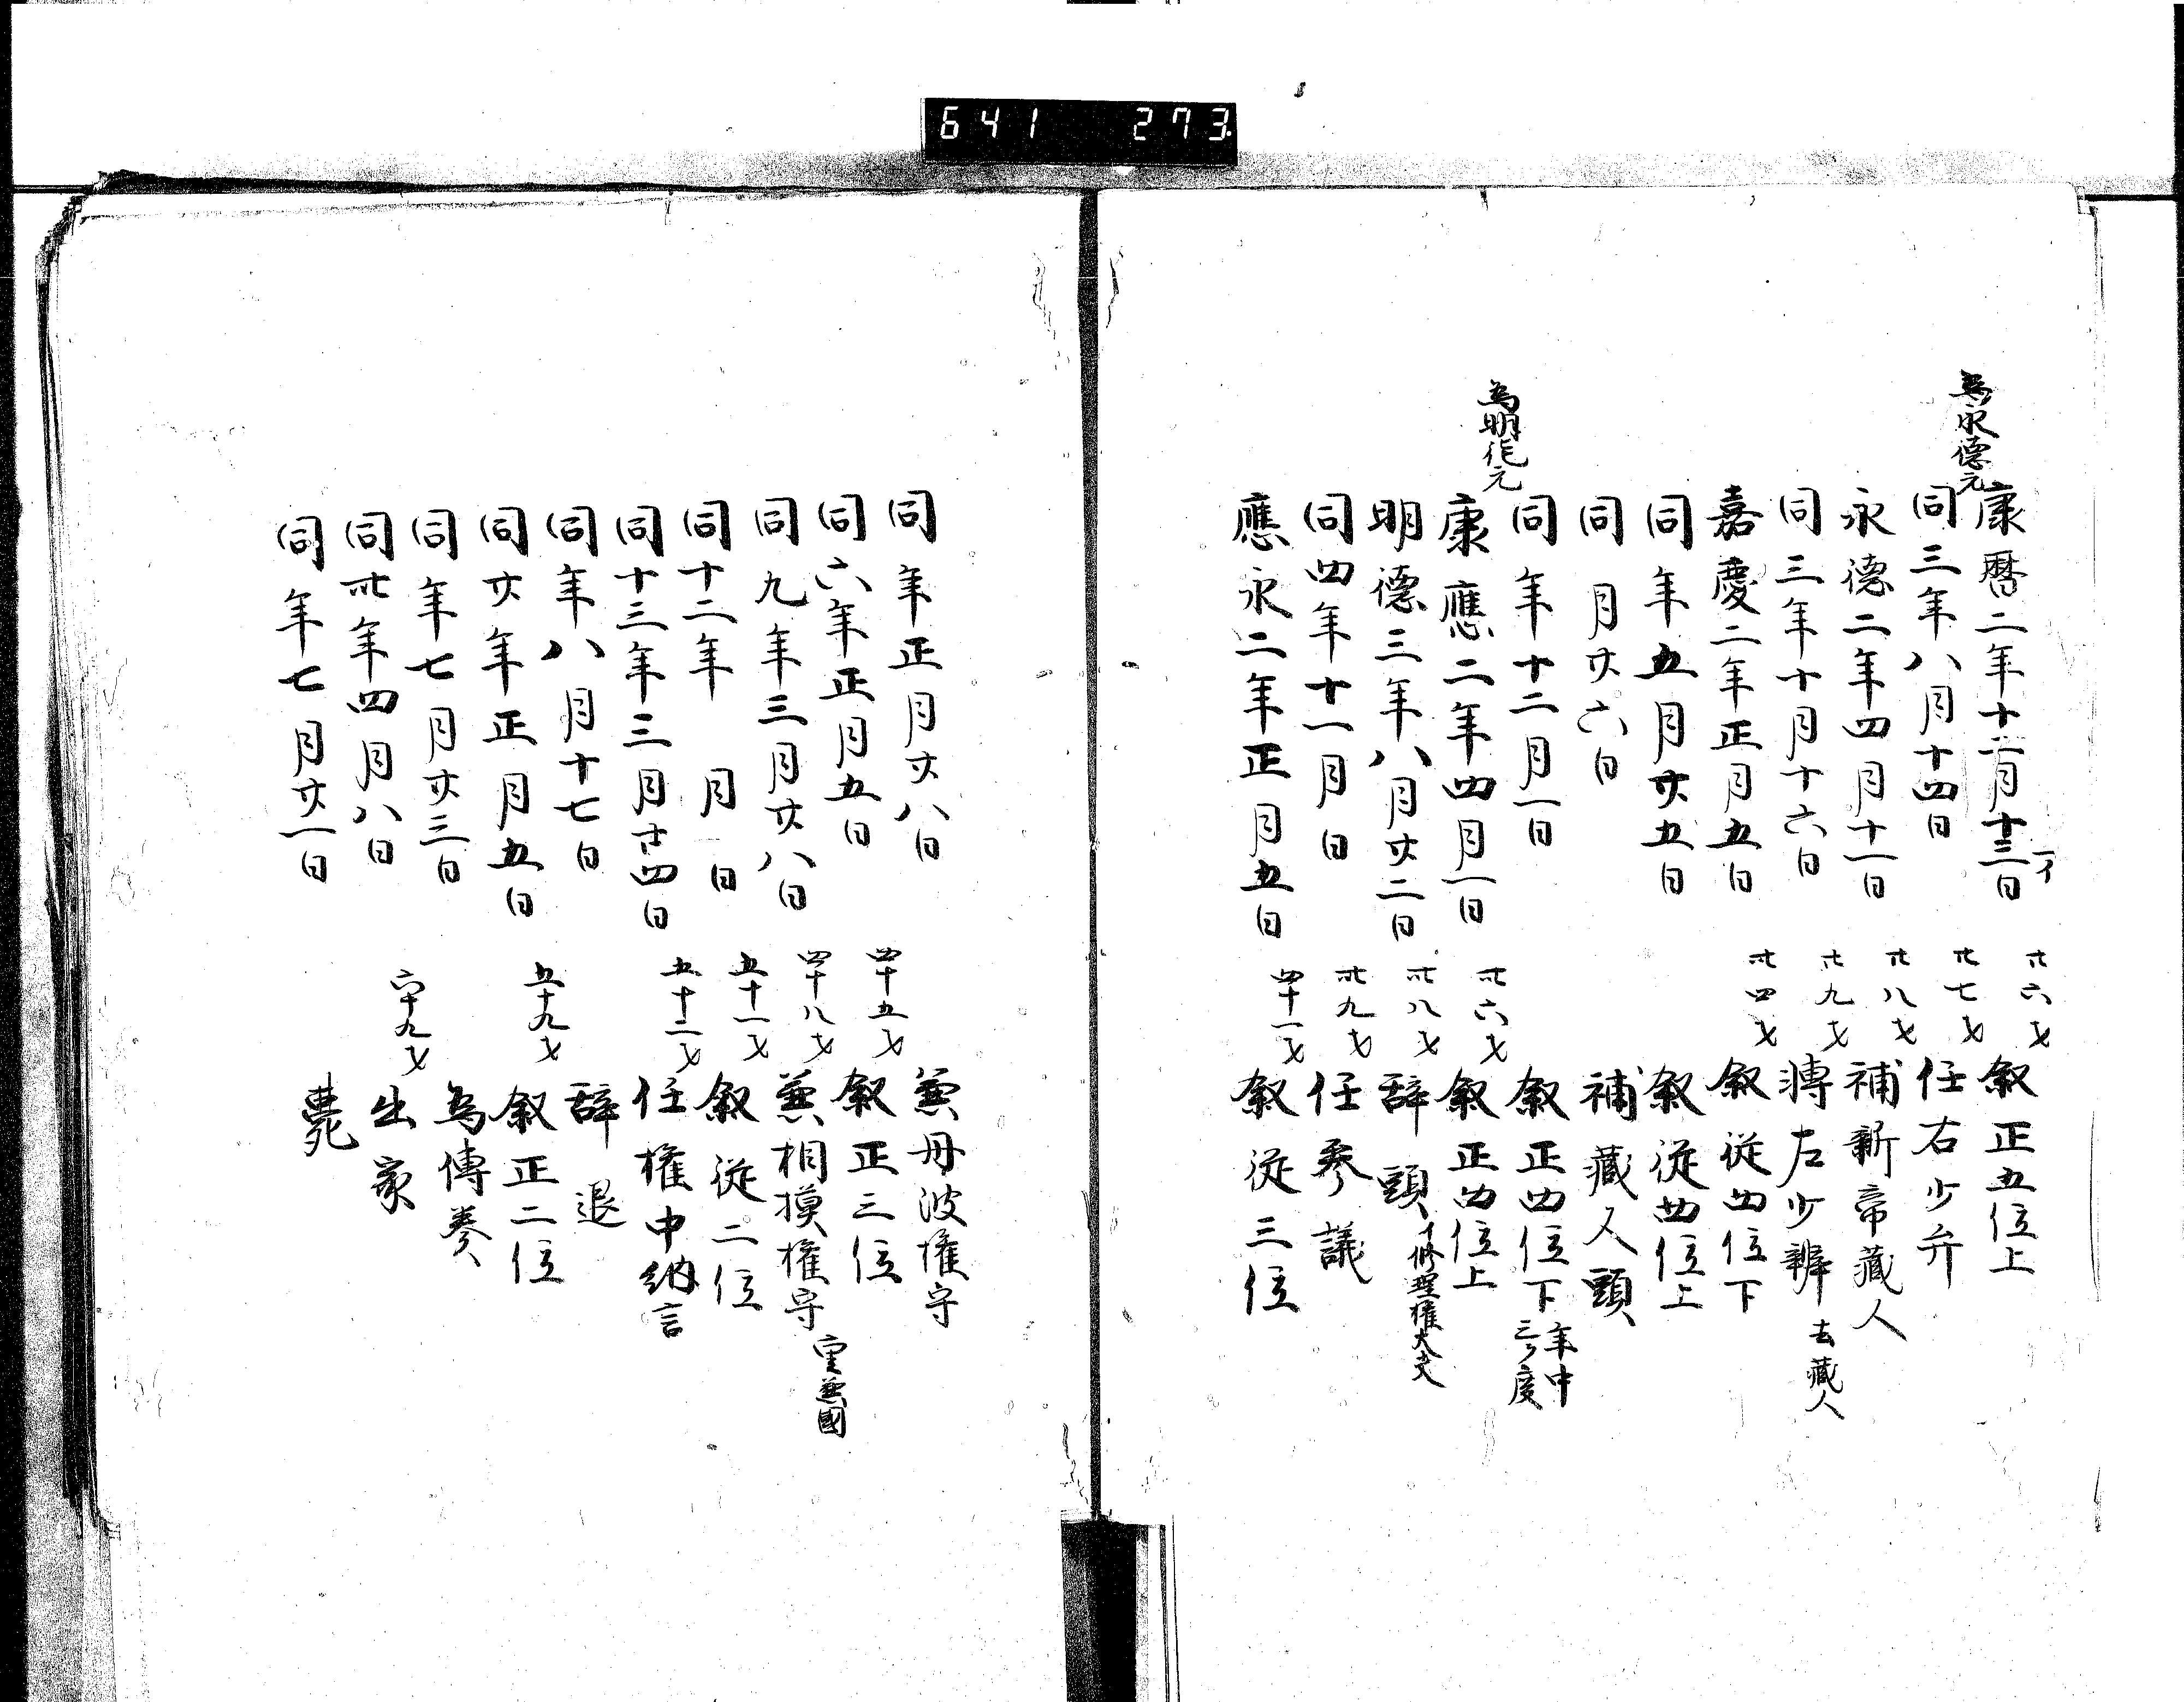 641 273
康暦二年十二月十三日 卅六才 叙正五位上
一イ
為永徳元
同三年八月十四日 卅七才 任右少弁
永徳二年四月十一日 卅八才 補新帝蔵人
同三年十月十六日 卅九才 轉左少辨 去蔵人
嘉慶二年正月五日 卅四才 叙従四位下
同年五月廿五日 叙従四位上
同月廿六日 補蔵人頭
同年十二月一日 叙正四位下 年中三ケ度
為明徳元
康應二年四月一日 卅六才 叙正四位上
明徳三年八月廿二日 卅八才 辞頭 イ修理権大夫
同四年十一月日 卅九才 任参議
應永二年正月五日 四十一才 叙従三位
同年正月廿八日 兼丹波権守
同六年正月五日 四十五才 叙正三位
同九年三月廿八日 四十八才 兼相摸権守 更兼國
同十二年 月 日 五十一才 叙従二位
同十三年三月廿四日 五十二才 任権中納言
同年八月十七日 辞退
同廿年正月五日 五十九才 叙正二位
同年七月廿三日 為傳奏
同卅年四月八日 六十九才 出家
同年七月廿一日 薨